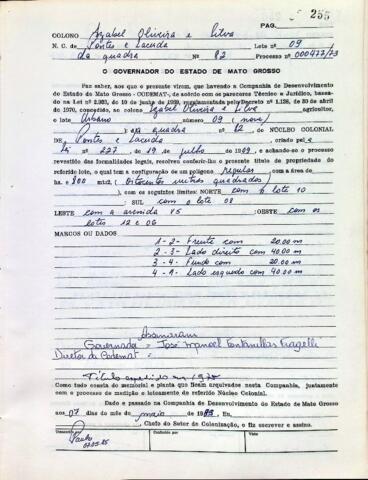 255
PAG.
COLONO Izabel Oliveira e Silva
N. C. de Pontes e Lacerda Lote nº 09
da quadra Nº 82 Processo nº 000477/73
O GOVERNADOR DO ESTADO DE MATO GROSSO
Faz saber, aos que o presente virem, que havendo a Companhia de Desenvolvimento
do Estado de Mato Grosso - CODEMAT-, de acordo com os pareceres Técnico e Jurídico, basea-
do na Lei nº 2.931, de 10 de junho de 1969, regulamentada pelo Decreto nº 1.128, de 30 de abril
de 1970, concedido, ao colono Izabel Oliveira e Silva agricultor,
o lote Urbano número 09 (nove)
da quadra nº 82, do NÚCLEO COLONIAL
DE Pontes e Lacerda, criado pela
Lei nº 227, de 19 de julho de 1949, e achando-se o processo
revestido das formalidades legais, resolveu conferir-lhe o presente título de propriedade do
referido lote, o qual tem a configuração de um polígono regular com a área de
hs. e 800 mts2, (Oitocentos metros quadrados)
, com os seguintes limites: NORTE com o lote 10
SUL com o lote 08
LESTE com a avenida 85 ;OESTE com os
lotes 12 e 06
MARCOS OU DADOS
1 - 2 - Frente com 20.00 m
2 - 3 - Lado direito com 40.00 m
3 - 4 - Fundo com 20.00 m
4 - 1 - Lado esquerdo com 40.00 m
Assinaram
Governador = José Manoel Fontanillas Fragelli
Diretor da Codemat =
Título expedido em
Como tudo consta do memorial e planta que ficam arquivados nesta Companhia, juntamente
com o processo de medição e loteamento do referido Núcleo Colonial.
Dado e passado na Companhia de Desenvolvimento do Estado de Mato Grosso
aos 07 dias do mês de maio de 1985, Eu,
, Chefe do Setor de Colonização, o fiz escrever e assino.
Conferido por
Visto
Paulo
07.05.85